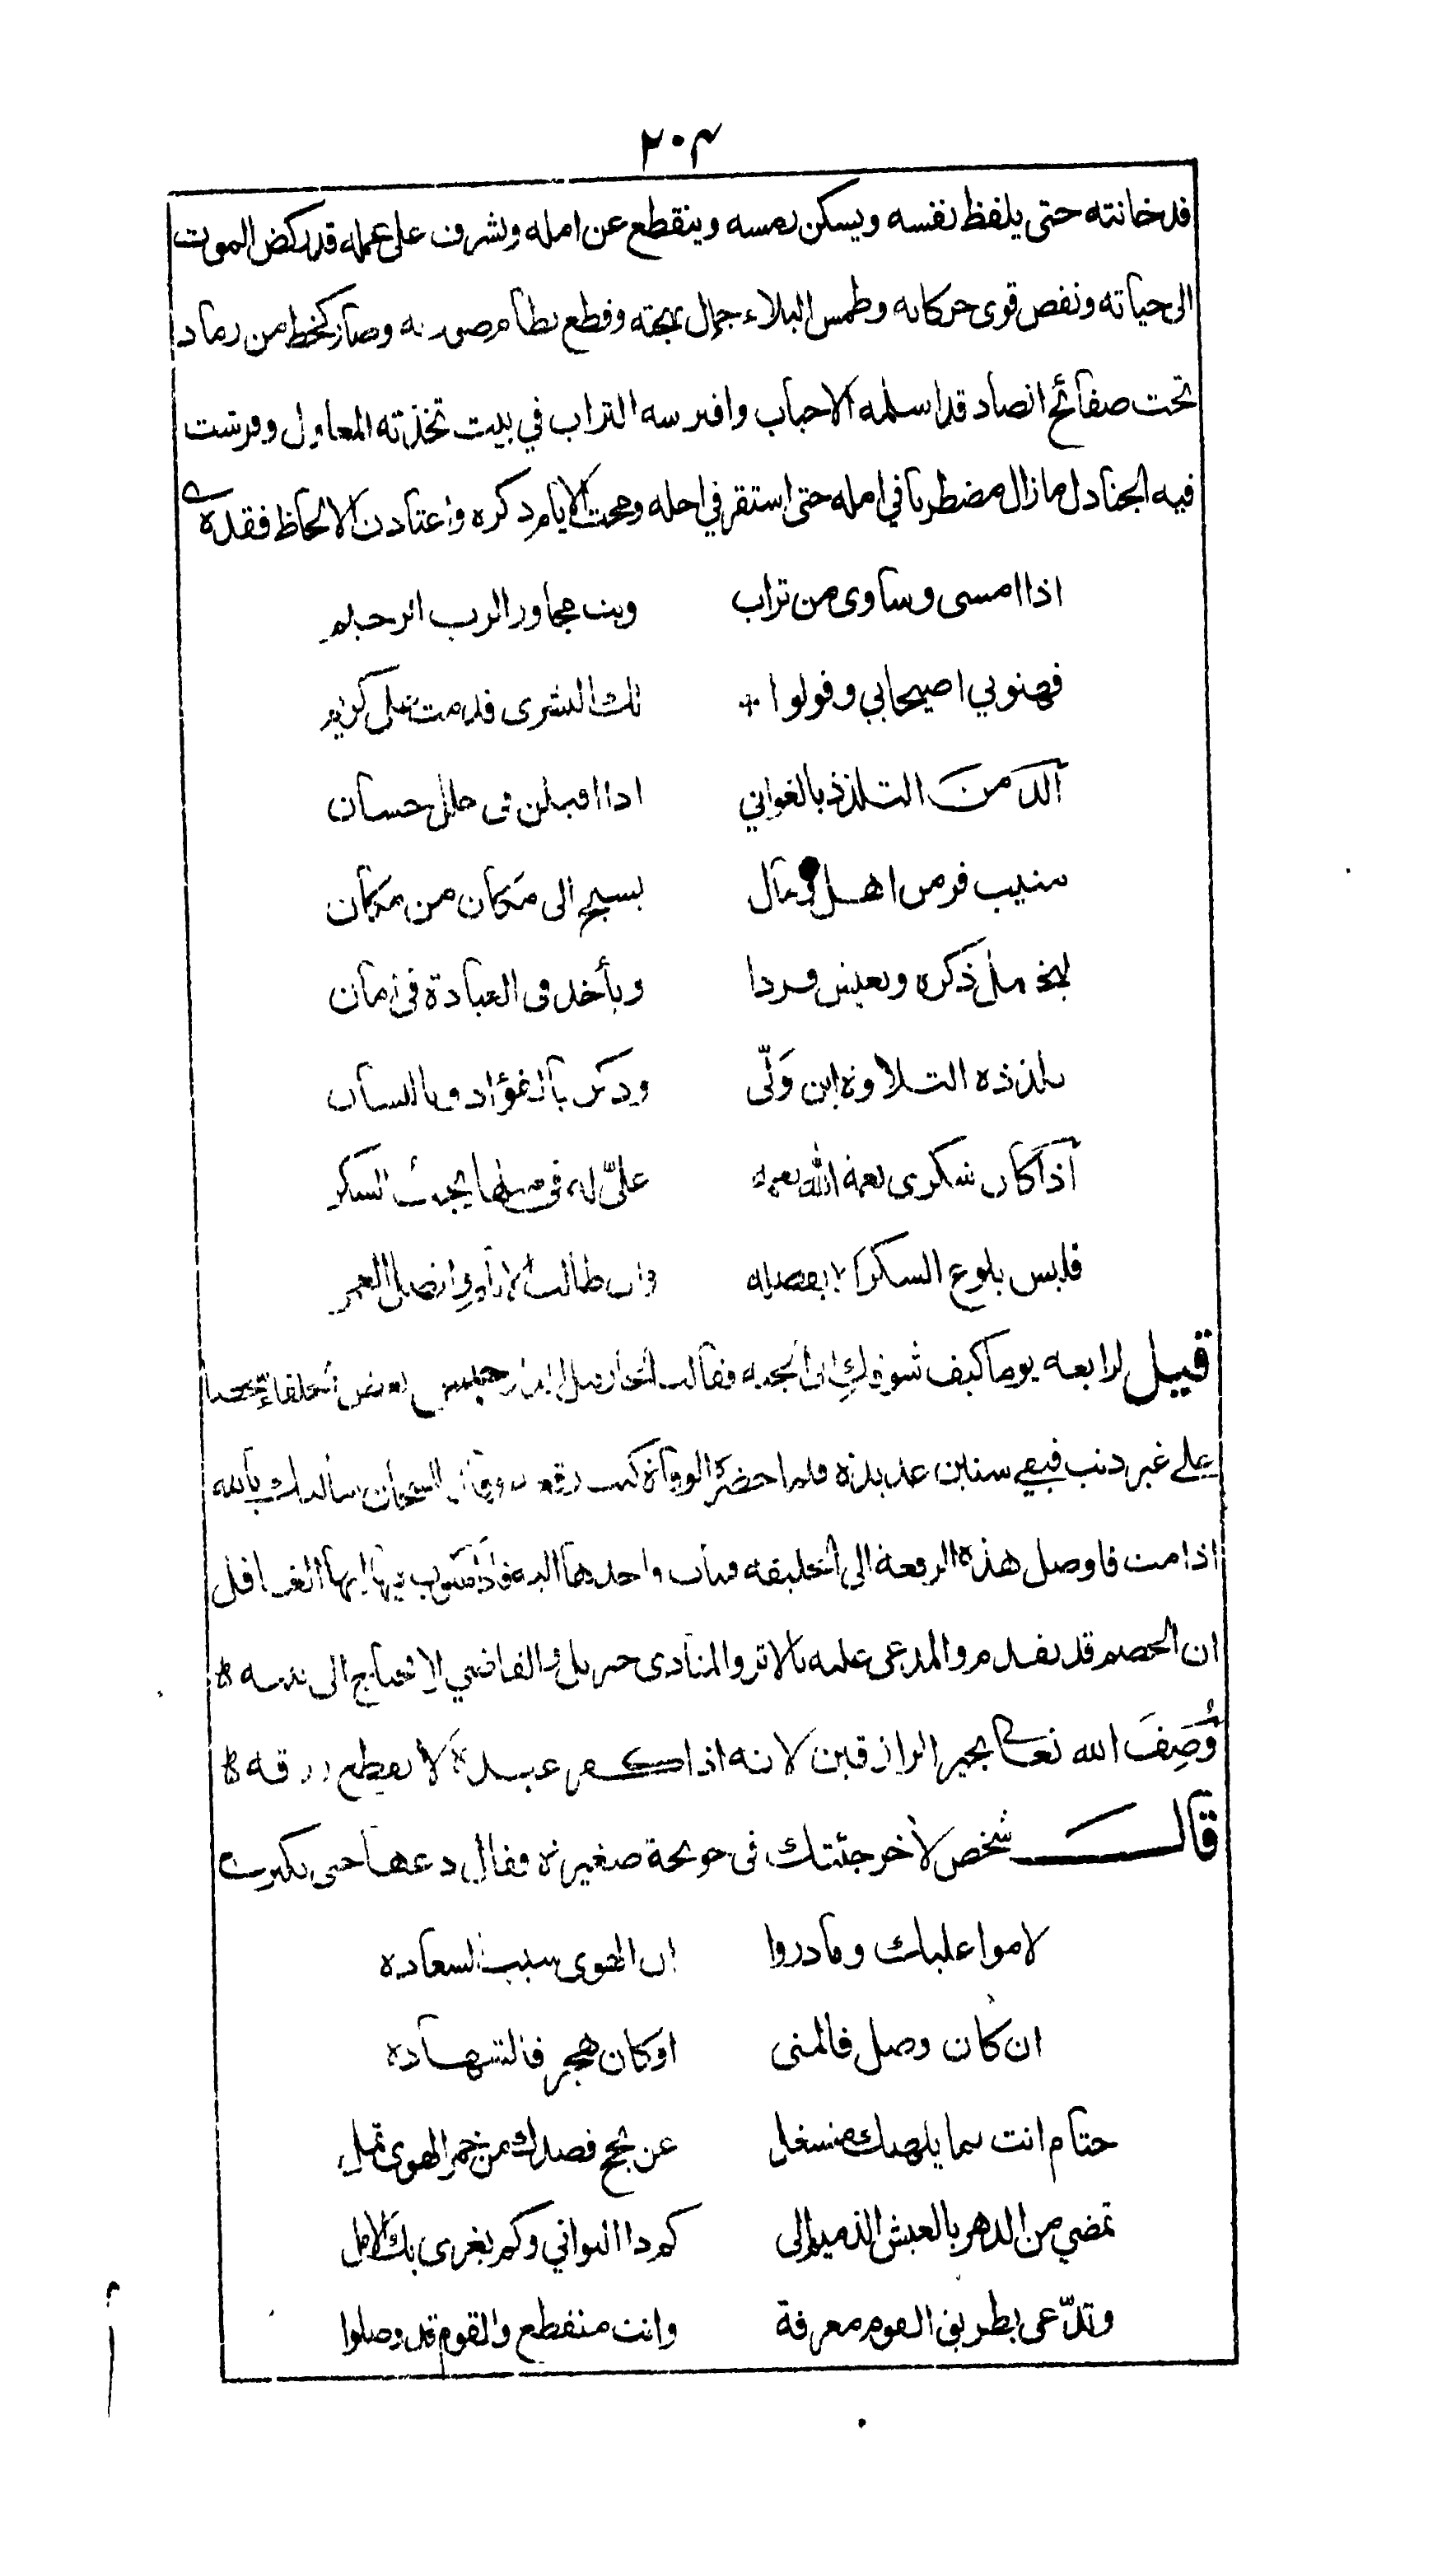 ٢٠٣
قد خانته حتى يلفظ نفسه ويسكن رمسه وينقطع عن امله ويشرف على عمله قد ركض الموت
الى حياته ونقص قوى حركاته وطمس البلاء جمال بهجته وقطع نظام صورته وصار كخط من رماد
تحت صفائح انضاد قد اسلمه الاحباب وافترسه التراب في بيت تخذته المعاول وفرشت
فيه الجنادل مازال مضطربا في امله حتى استقر في اجله ومحت الايام ذكره واعتادت الالحاظ فقده
اذا امسى وسادى من تراب وبت مجاور الرب الرحيم
فهنوني اصيحابي وقولوا لك البشرى قدمت على كريم
ألذ من التلذذ بالغواني اذا اقبلن فى حلل حسان
منيب فر من اهل ومال يسيح الى مكان من مكان
ليخمل ذكره ويعيش فردا ويأخذ فى العبادة فى امان
تلذذه التلاوة اين ولّى وذكر بالفؤاد وباللسان
اذا كان شكرى نعمة الله نعمة علىّ له فى مثلها يجب الشكر
فليس بلوغ الشكر الا بفضله وان طالت الايام واتصل العمر
قيل لرابعه يوما كيف شوقك الى الجنه فقالت الجار قبل الدار حبس بعض الخلفاء شخصا
على غير ذنب فبقي سنين عديدة فلما حضرته الوفاة كتب رقعه وقال للسجان سألتك بالله
اذا مت فاوصل هذه الرقعة الى الخليفة فمات واخذها اليه فاذا مكتوب فيها ايها الغافل
ان الخصم قد تقدم والمدعى عليه بالاثر والمنادى جبريل والقاضي لا يحتاج الى بينه
وُصِفَ الله تعالى بخير الرازقين لانه اذا كفر عبده لا يقطع رزقه
قال شخص لآخر جئتك فى حويجة صغيرة فقال دعها حتى تكبر
لاموا عليك وما دروا ان الهوى سبب السعاده
ان كان وصل فالمنى او كان هجر فالشهاده
حتام انت بما يلهيك منشغل عن نجح قصدك من خمر الهوى ثمل
تمضي من الدهر بالعيش الذميم الى كم ذا التواني وكم يغرى بك الامل
وتدّعى بطريق القوم معرفة وانت منقطع والقوم قد وصلوا